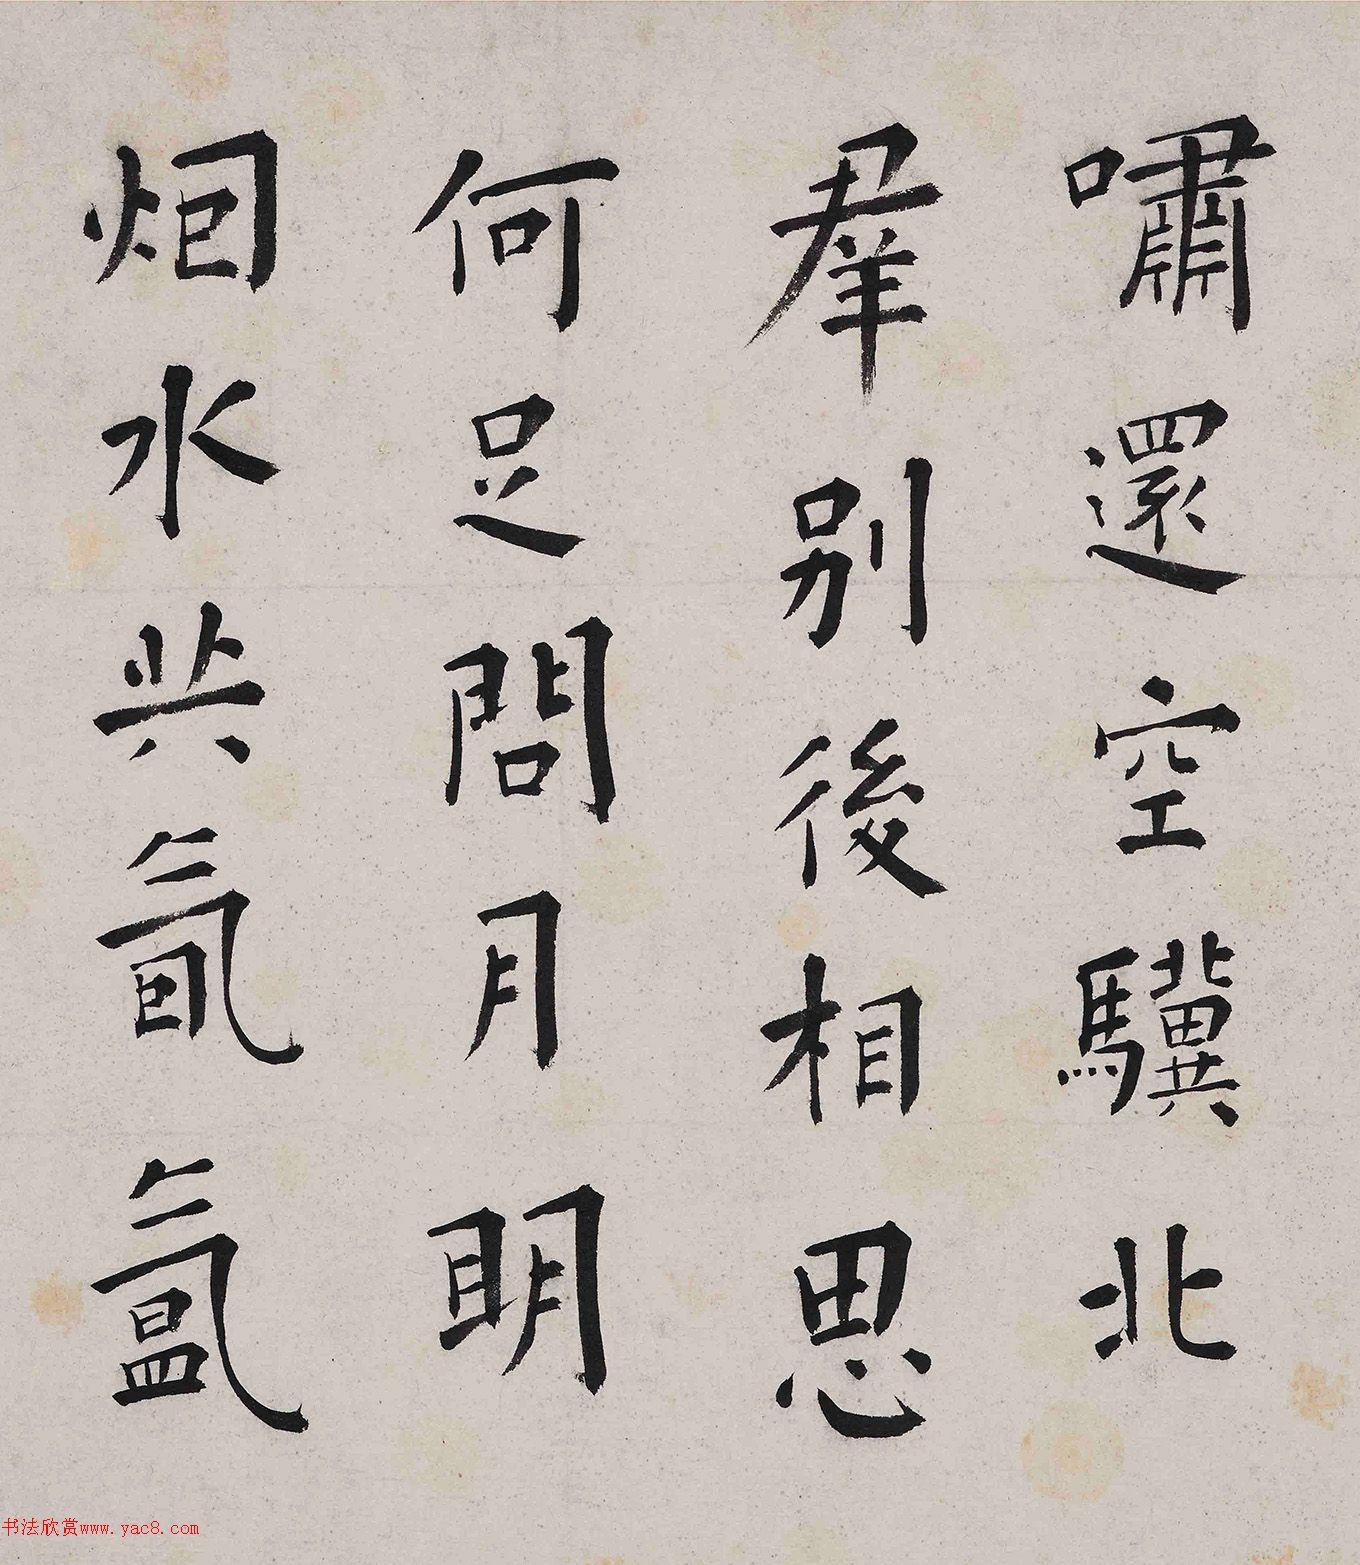 嘯還空驥北
羣别後相思
何足問月明
烟水共氤氲
书法欣赏www.yac8.com